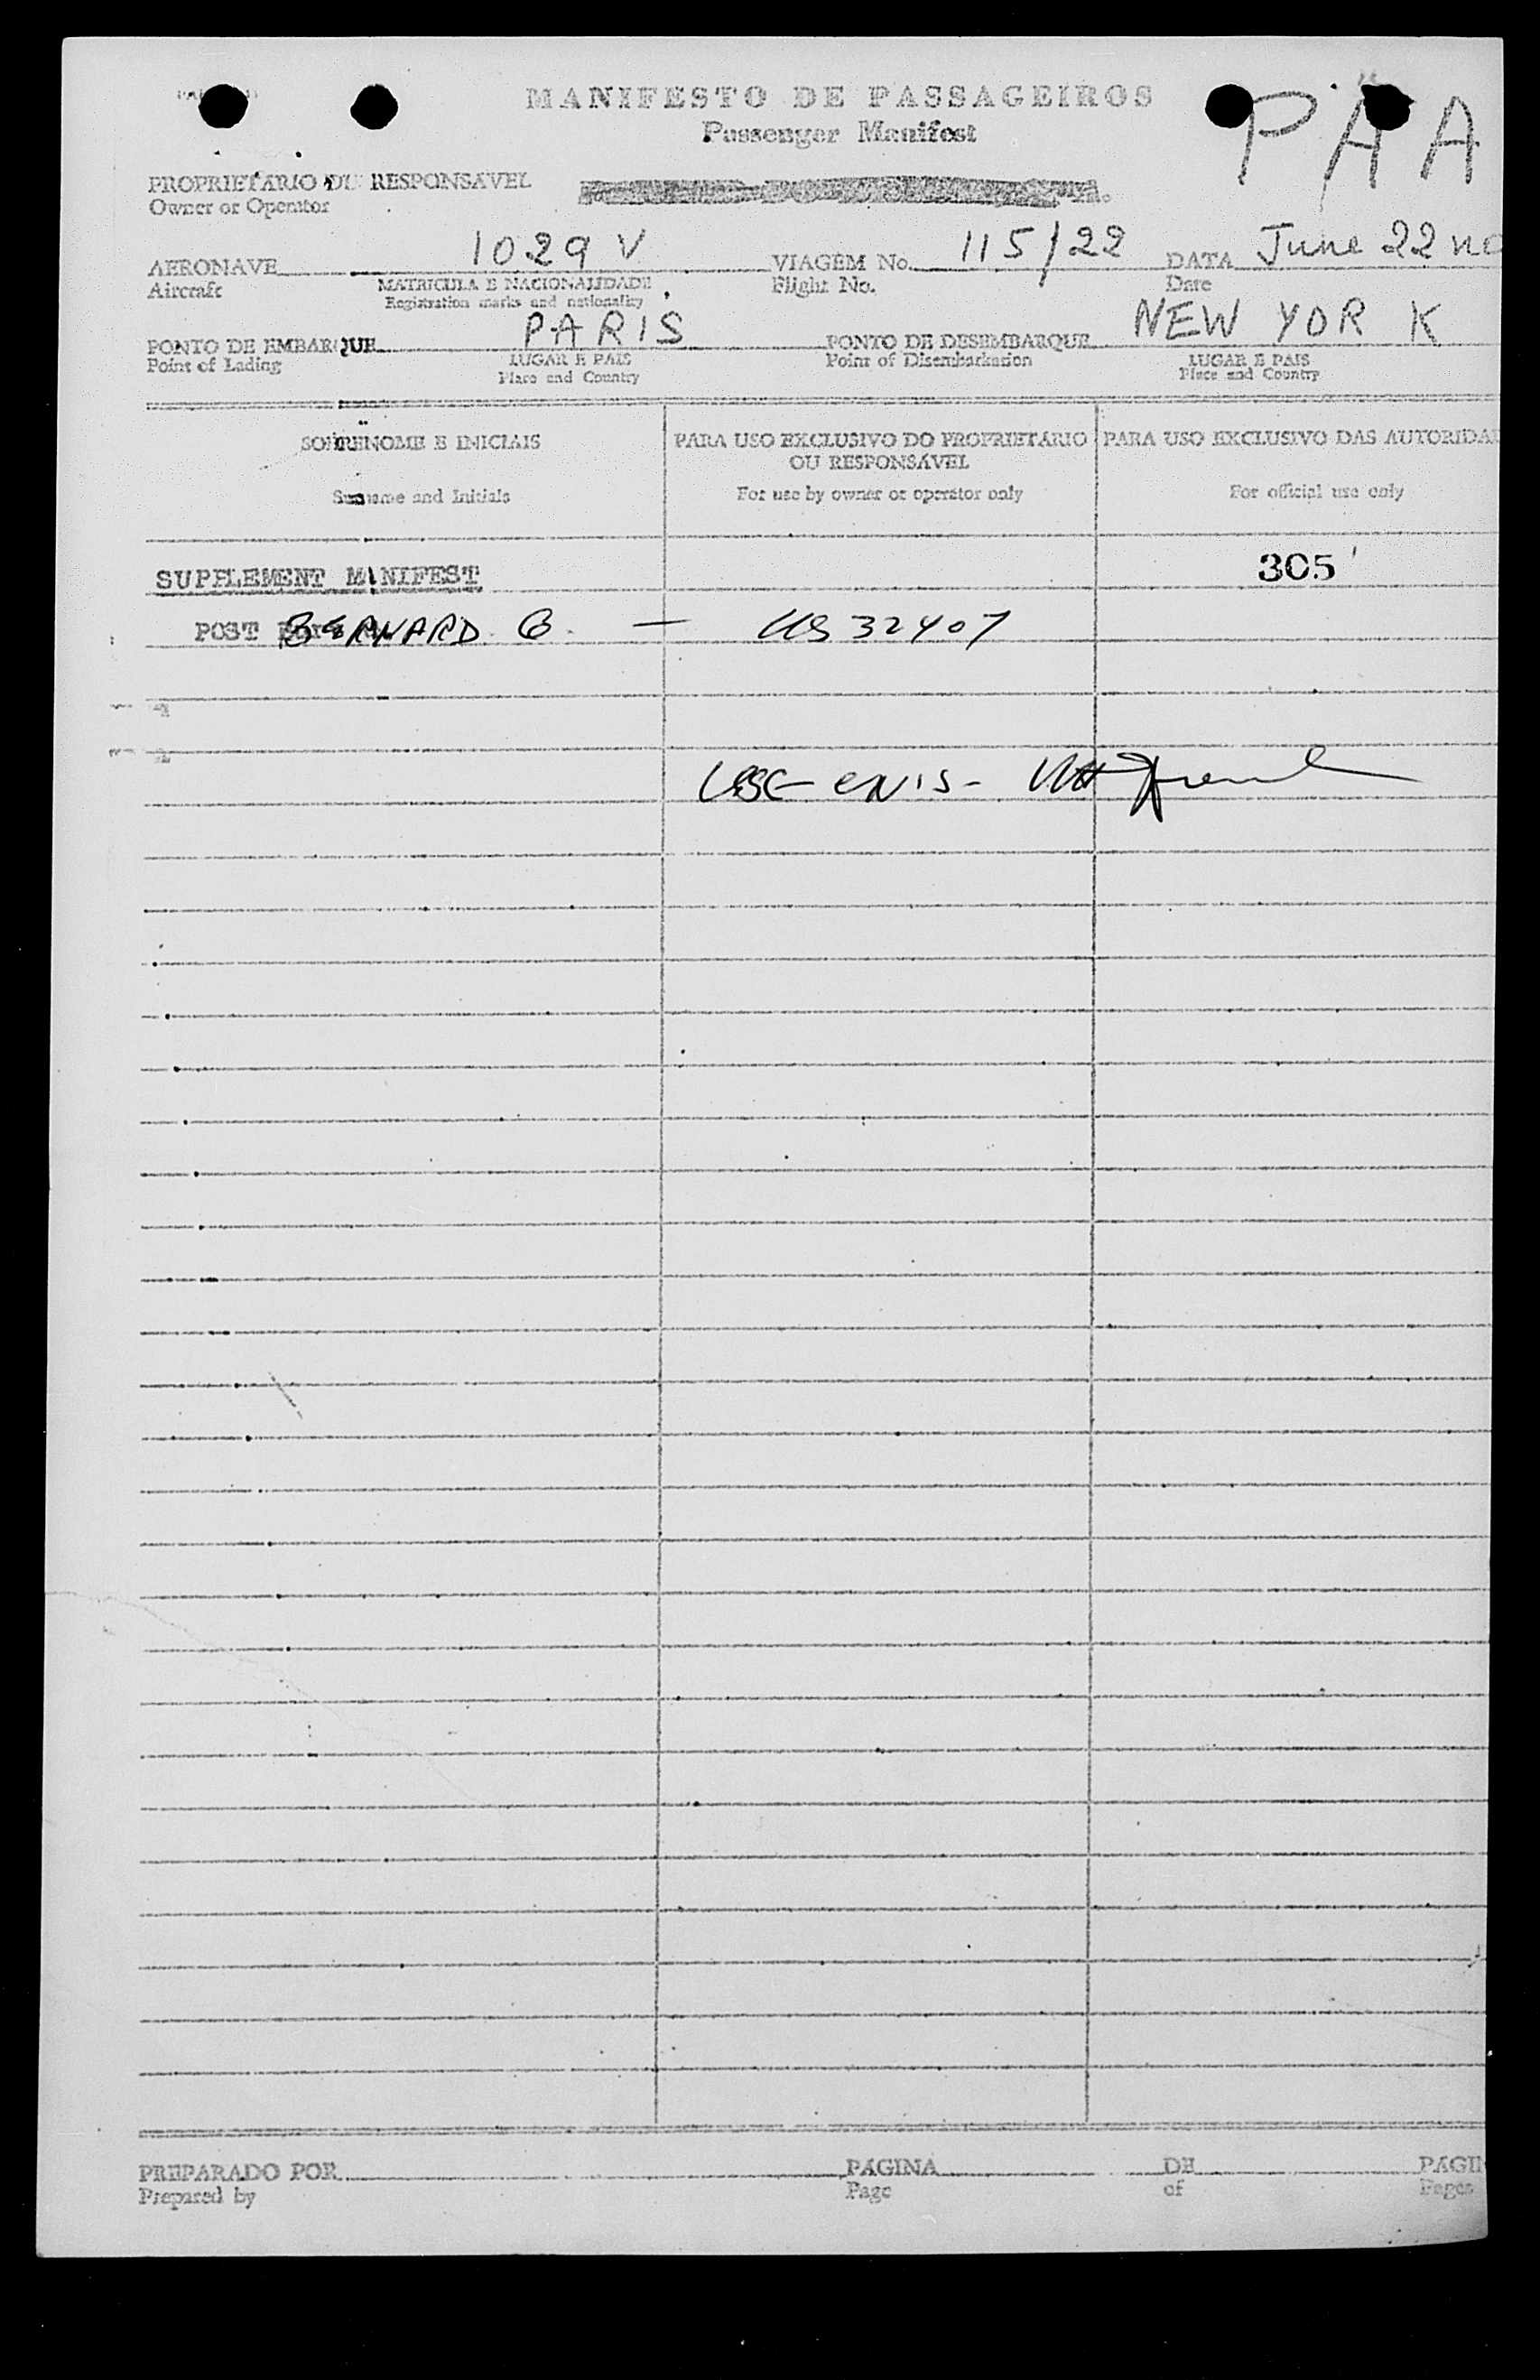 MANIFESTO DE PASSAGEIROS
Passenger Manifest
PAA
PROPRIETÁRIO OU RESPONSÁVEL
Owner or Operator
AERONAVE 1029 V VIAGEM No. 115/22 DATA June 22nd
Aircraft MATRICULA E NACIONALIDADE Flight No. Date
Registration marks and nationality
PONTO DE EMBARQUE PARIS PONTO DE DESEMBARQUE NEW YORK
Point of Lading LUGAR E PAIS Point of Disembarkation LUGAR E PAIS
Place and Country Place and Country
SOBRENOME E INICIAIS PARA USO EXCLUSIVO DO PROPRIETÁRIO PARA USO EXCLUSIVO DAS AUTORIDA
OU RESPONSÁVEL
Surname and Initials For use by owner or operator only For official use only
SUPPLEMENT MANIFEST 305
POST BERNARD. G. — US 32407
PREPARADO POR PAGINA DE PAGI
Prepared by Page of Pages